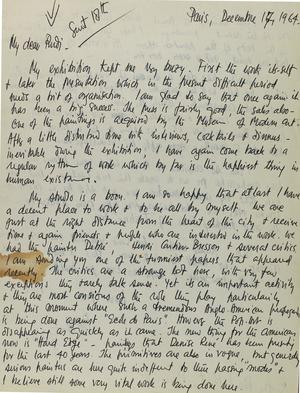 Sent 18th
Paris, December 17, 1964.
My dear Rudi.
My exhibition kept me very busy. First the work itself
& later the presentation which in the present difficult period
needs a lot of organisation. I am glad to say that once again it
has been a big success. The press is fairly good, the sales also
One of the paintings is acquired by the Museum of Modern Art.
After a little disturbed time with interviews, cocktails & dinners -
inevitable during the exhibition I have again come back to a
regular rythm of work which by far is the happiest thing in
human existence.
My studio is a boon. I am so happy that at last I have
a decent place to work & to be all by myself. We are
just at the right distance from the heart of the city & receive
now & again friends & people who are interested in the work. We
had the painter Debré Henri Cartier Bresson & several critics
I am sending you one of the funniest papers that appeared
recently. The critics are a strange lot here, with very few
exceptions they rarely talk sense. Yet its an important activity
& they are most conscious of the role they play particularly
at this moment where such a tremendous Anglo American propaganda
is being done against "Ecole de Paris". However the Pop-Art is
disappearing as quickly as it came. The new thing for the Americans
now is "Hard Edge" - paintings that Denise René has been
for the last 40 years. The primitives are also in vogue, but
serious painters are here quite indifferent to these passing "modes" &
I believe still some very vital work is being done here.